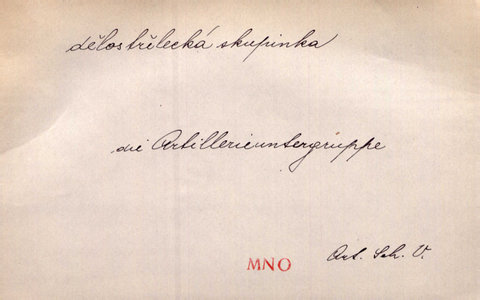 dělostřelecká skupinka
die Artillerieuntergruppe
Art. Sch. V.
MNO